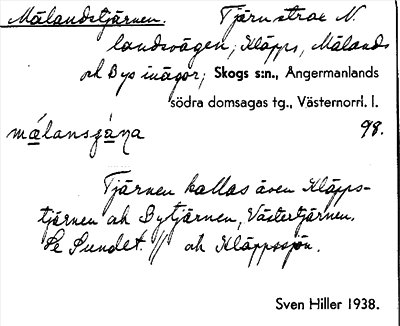 Mälandstjärnen. Tjärn strax N.
landsvägen, Kläpps, Mälands
och Bys inägor; Skogs s:n., Ångermanlands
södra domsagas tg., Västernorrl. l.
98.
Tjärnen kallas även Kläpps-
tjärnen och Bytjärnen, Västertjärnen.
Se Sundet. // och Kläppssjön.
Sven Hiller 1938.